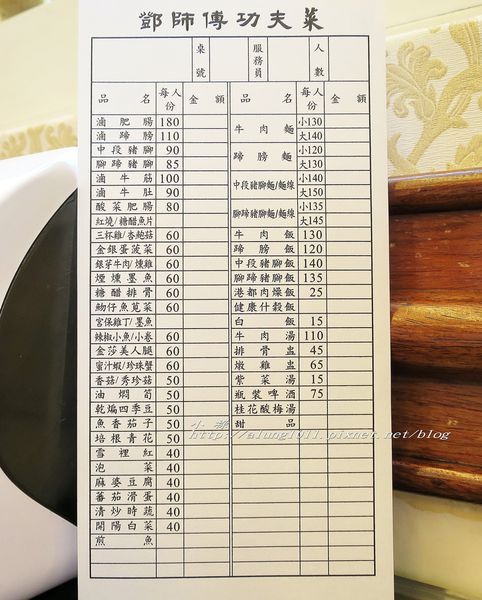 鄧師傅功夫菜
桌號 服務員 人數
品名 每人份 金額 品名 每人份 金額
滷肥腸 180
滷蹄膀 110
中段豬腳 90
腳蹄豬腳 85
滷牛筋 100
滷牛肚 90
酸菜肥腸 80
紅燒/糖醋魚片
三杯雞/杏鮑菇 60
金銀蛋菠菜 60
銀芽牛肉/燻雞 60
煙燻墨魚 60
糖醋排骨 60
魩仔魚莧菜 60
宮保雞丁/墨魚
辣椒小魚/小卷 60
金莎美人腿 60
蜜汁蝦/珍珠蟹 60
香菇/秀珍菇 50
油燜筍 50
乾煸四季豆 50
魚香茄子 50
培根青花 50
雪裡紅 40
泡菜 40
麻婆豆腐 40
蕃茄滑蛋 40
清炒時蔬 40
開陽白菜 40
煎魚
牛肉麵 小130
大140
蹄膀麵 小120
大130
中段豬腳麵/麵線 小140
大150
腳蹄豬腳麵/麵線 小135
大145
牛肉飯 130
蹄膀飯 120
中段豬腳飯 140
腳蹄豬腳飯 135
港都肉燥飯 25
健康什穀飯
白飯 15
牛肉湯 110
排骨盅 45
燉雞盅 65
紫菜湯 15
瓶裝啤酒 75
桂花酸梅湯
甜品
http://alung1011.pixnet.net/blog